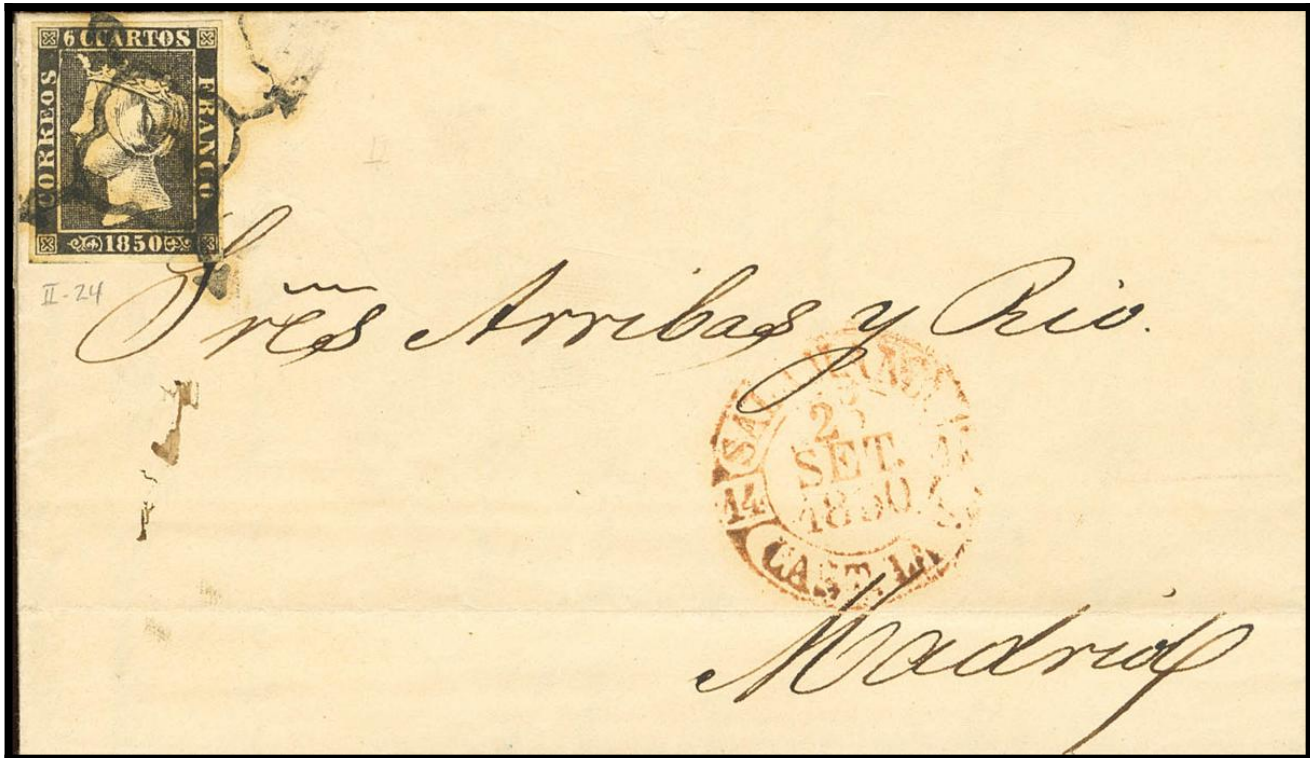 6 CUARTOS
CORREOS
FRANCO
1850
II
II-24
Sres Arribas y Rio.
SALAMANCA
25
SET.
1850
14
CAST. LA
Madrid